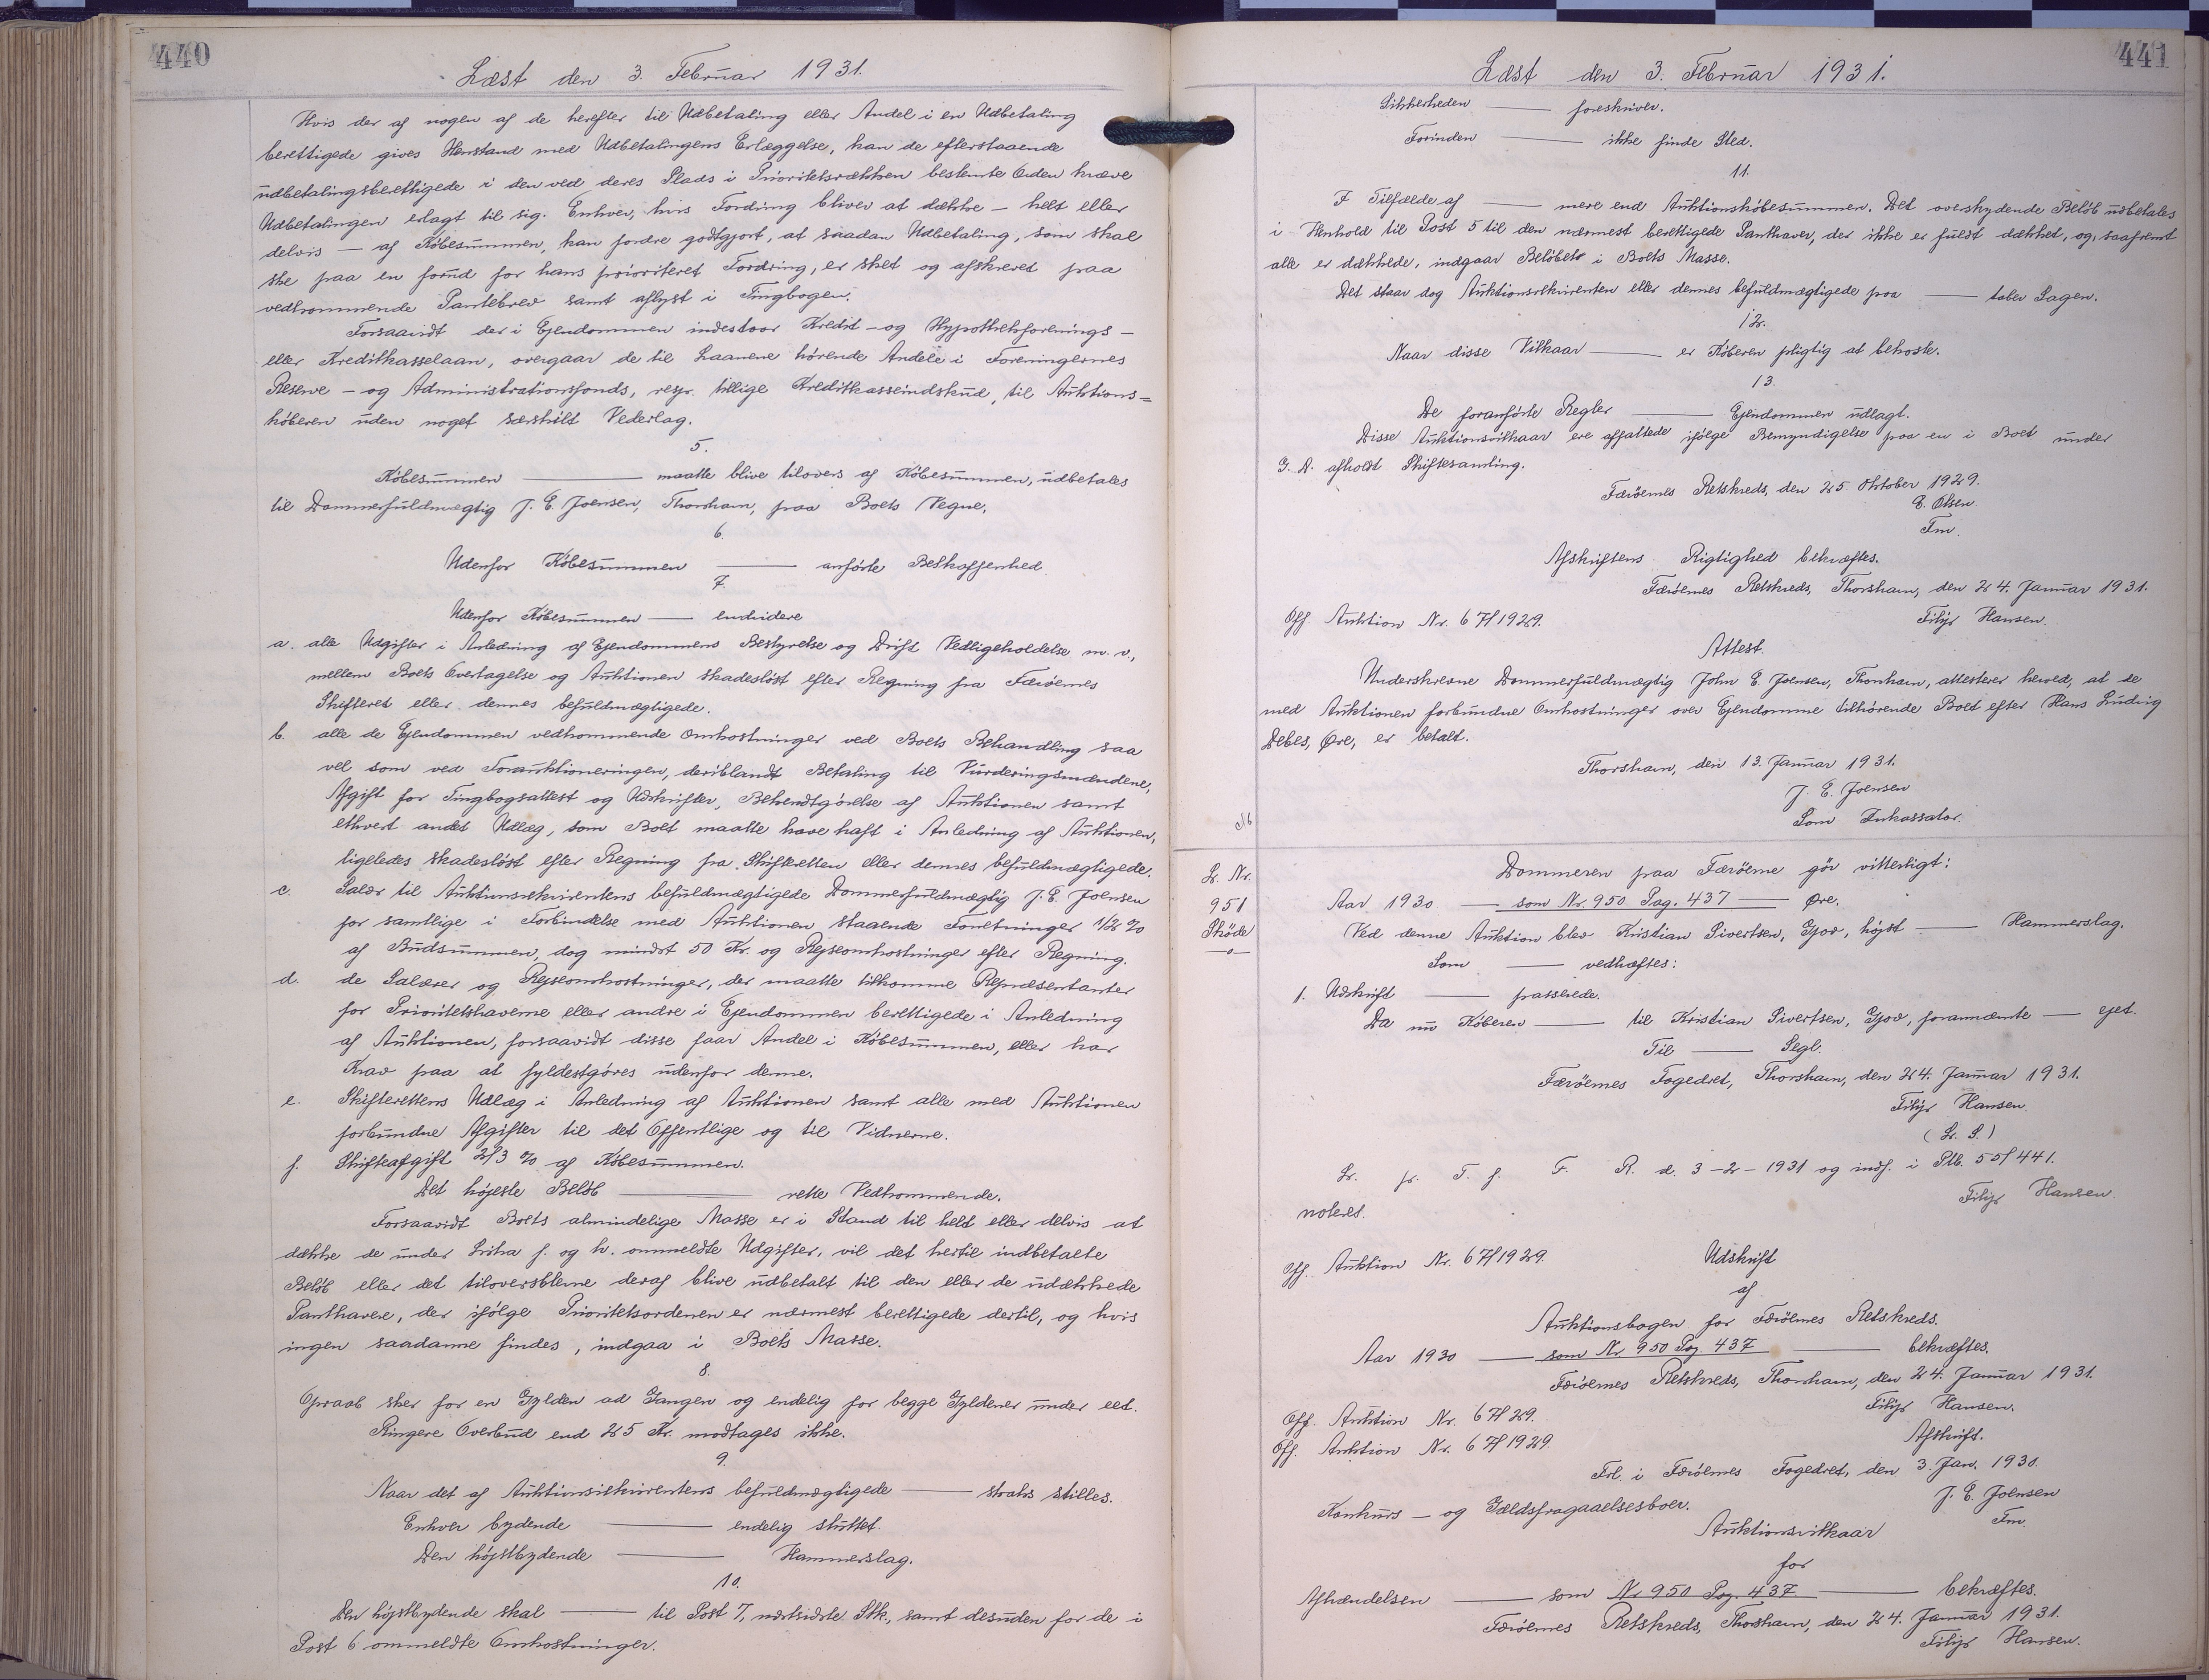 440
Læst den 3. Februar 1931.
Hvis der af nogen af de herefter til Udbetaling eller Andel i en Udbetaling
berettigede gives Henstand med Udbetalingens Erlæggelse, kan de efterstaaende
udbetalingsberettigede i den ved deres Plads i Prioritetsrækken bestemte Orden kræve
Udbetalingen erlagt til sig. Enhver, hvis Fordring bliver at dække - helt eller
delvis - af Købesummen, kan fordre godtgjort, at saadan Udbetaling, som skal
ske paa en forud for hans prioriteret Fordring, er sket og afskrevet paa
vedkommende Pantebrev samt aflyst i Tingbogen.
Forsaavidt der i Ejendommen indestaar Kredit - og Hypothekforenings -
eller Kreditkasselaan, overgaar de til Laanene hørende Andele i Foreningernes
Reserve - og Administrationsfonds, resp. tillige Kreditkasseindskud, til Auktions=
køberen uden noget særskilt Vederlag.
5.
Købesummen ——— maatte blive tilovers af Købesummen, udbetales
til Dommerfuldmægtig J. E. Joensen, Thorshavn, paa Boets Vegne.
6.
Udenfor Købesummen ——— anførte Beskaffenhed.
7.
Udenfor Købesummen —— endvidere
a. alle Udgifter i Anledning af Ejendommens Bestyrelse og Drift Vedligeholdelse m. v.,
mellem Boets Overtagelse og Auktionen skadesløst efter Regning fra Færøernes
Skifteret eller dennes befuldmægtigede.
b. alle de Ejendommen vedkommende Omkostninger ved Boets Behandling saa
vel som ved Forauktioneringen, deriblandt Betaling til Vurderingsmændene,
Afgift for Tingbogsattest og Udskrifter, Bekendtgørelse af Auktionen samt
ethvert andet Udlæg, som Boet maatte have haft i Anledning af Auktionen,
ligeledes skadesløst efter Regning fra Skifteretten eller dennes befuldmægtigede.
c. Salær til Auktionsrekvirentens befuldmægtigede Dommerfuldmægtig J. E. Joensen
for samtlige i Forbindelse med Auktionen staaende Forretninger 1/2 %
af Budsummen, dog mindst 50 Kr. og Rejseomkostninger efter Regning.
d. de Salærer og Rejseomkostninger, der maatte tilkomme Repræsentanter
for Prioritetshaverne eller andre i Ejendommen berettigede i Anledning
af Auktionen, forsaavidt disse faar Andel i Købesummen, eller har
Krav paa at fyldestgøres udenfor denne.
e. Skifterettens Udlæg i Anledning af Auktionen samt alle med Auktionen
forbundne Afgifter til det Offentlige og til Vidnerne.
f. Skifteafgift 2/3 % af Købesummen.
Det højeste Beløb ——— rette Vedkommende.
Forsaavidt Boets almindelige Masse er i Stand til helt eller delvis at
dække de under Litra f. og h. ommeldte Udgifter, vil det hertil indbetalte
Beløb eller det tiloversblevne deraf blive udbetalt til den eller de udækkede
Panthavere, der ifølge Prioritetsordenen er nærmest berettigede dertil, og hvis
ingen saadanne findes, indgaa i Boets Masse.
8.
Opraab sker for en Gylden ad Gangen og endelig for begge Gyldener under eet.
Ringere Overbud end 25 Kr. modtages ikke.
9.
Naar det af Auktionsrekvirentens befuldmægtigede —— straks stilles.
Enhver bydende ——— endelig sluttet.
Den højstbydende ——— Hammerslag.
10.
Den højstbydende skal ——— til Post 7, næstsidste Stk., samt desuden for de i
Post 6 ommeldte Omkostninger.
441
Læst den 3. Februar 1931.
Sikkerheden —— foreskriver.
Forinden —— ikke finde Sted.
11.
I Tilfælde af —— mere end Auktionskøbesummen. Det overskydende Beløb udbetales
i Henhold til Post 5 til den nærmest berettigede Panthaver, der ikke er fuldt dækket, og, saafremt
alle er dækkede, indgaar Beløbet i Boets Masse.
Det staar dog Auktionsrekvirenten eller dennes befuldmægtigede paa —— taber Sagen.
12.
Naar disse Vilkaar —— er Køberen pligtig at bekoste.
13.
De foranførte Regler —— Ejendommen udlagt.
Disse Auktionsvilkaar ere affattede ifølge Bemyndigelse paa en i Boet under
G. D. afholdt Skiftesamling.
Færøernes Retskreds, den 25. Oktober 1929.
E. Olsen.
Fm.
Afskriftens Rigtighed bekræftes.
Færøernes Retskreds, Thorshavn, den 24. Januar 1931.
Off. Auktion Nr. 67/1929.
Filip Hansen.
Attest.
Underskrevne Dommerfuldmægtig John E. Joensen, Thorshavn, attesterer herved, at de
med Auktionen forbundne Omkostninger over Ejendomme tilhørende Boet efter Hans Ludvig
Debes, Øre, er betalt.
Thorshavn, den 13. Januar 1931.
J. E. Joensen
Som Inkassator.
L. Nr.
951
Skøde
—o—
Dommeren paa Færøerne gör vitterligt:
Aar 1930 —— som Nr. 950 Pag. 437 —— Øre.
Ved denne Auktion blev Kristian Sivertsen, Gjov, højst —— Hammerslag.
Som —— vedhæftes:
1. Udskrift —— passerede.
Da nu Køberen —— til Kristian Sivertsen, Gjov, forannævnte —— ejet.
Til —— Segl.
Færøernes Fogedret, Thorshavn, den 24. Januar 1931.
Filip Hansen.
(L. S.)
L. fr. T. f. F. R. d. 3-2-1931 og indf. i Ptb. 55/441.
noteret.
Filip Hansen.
Off. Auktion Nr. 67/1929.
Udskrift
af
Auktionsbogen for Færøernes Retskreds.
Aar 1930 —— som Nr. 950 Pag. 437 —— bekræftes.
Færøernes Retskreds, Thorshavn, den 24. Januar 1931.
Off. Auktion Nr. 67/29.
Filip Hansen.
Off. Auktion Nr. 67/1929.
Afskrift.
Frl. i Færøernes Fogedret, den 3. Jan. 1930.
J. E. Joensen
Fm.
Konkurs - og Gældsfragaaelsesboer.
Auktionsvilkaar
for
Afhændelsen —— som Nr 950 Pag. 437 —— bekræftes.
Færøernes Retskreds, Thorshavn, den 24. Januar 1931.
Filip Hansen.